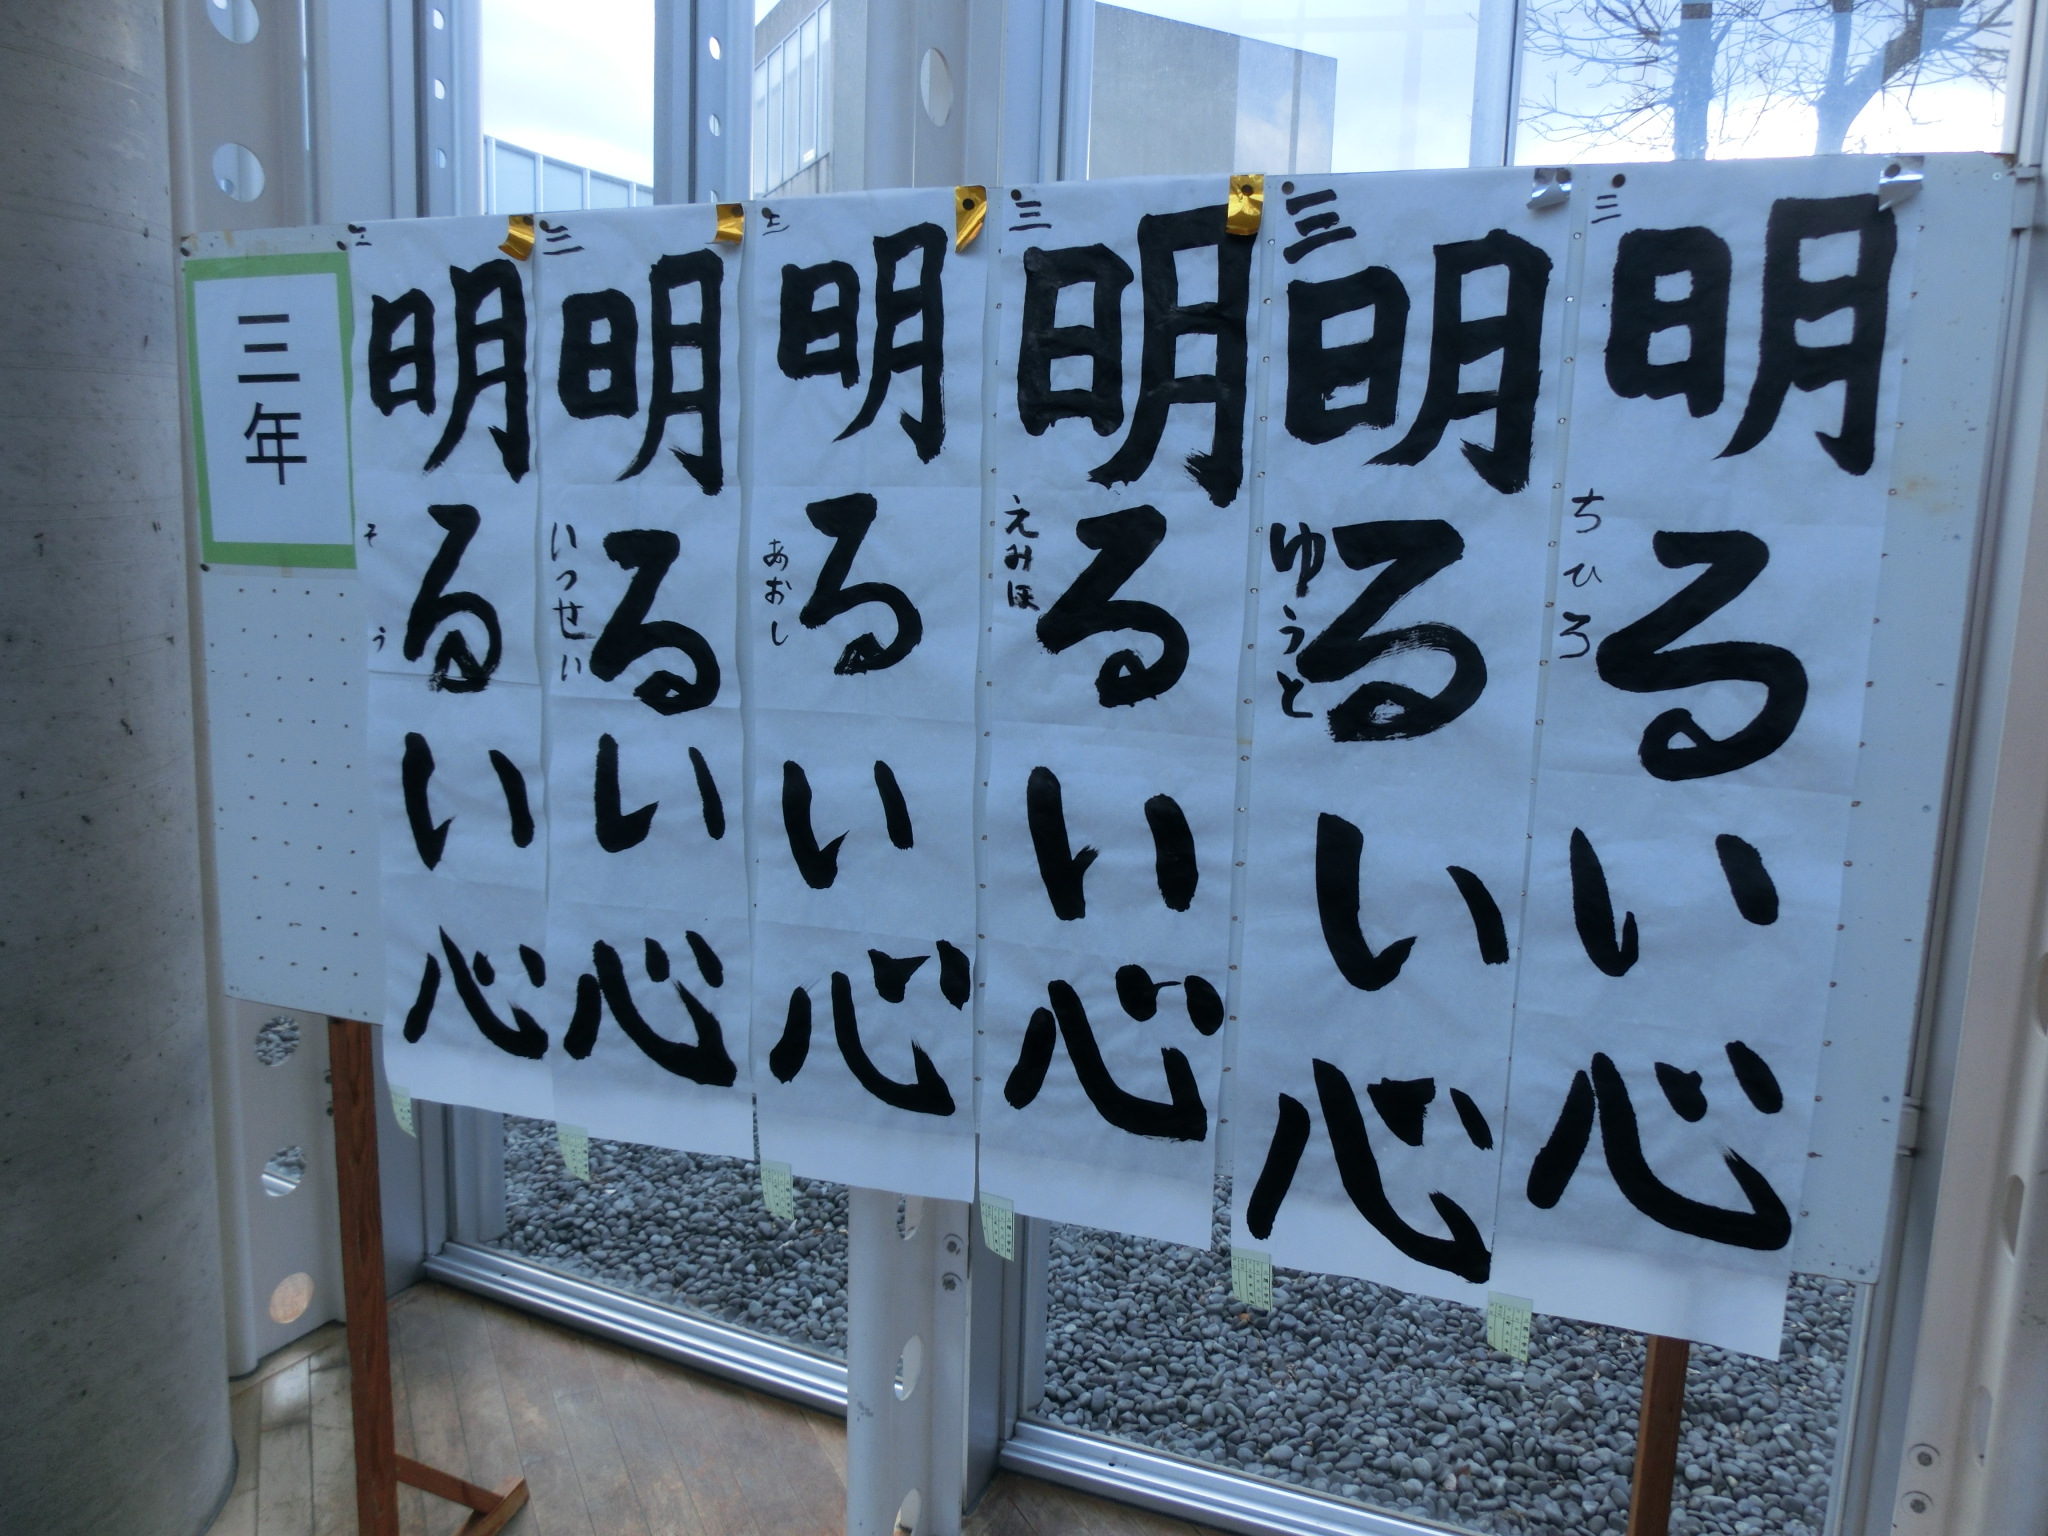 三年
三
明るい心
ちひろ
三
明るい心
ゆうと
三
明るい心
えみほ
三
明るい心
あおし
三
明るい心
いっせい
三
明るい心
そう